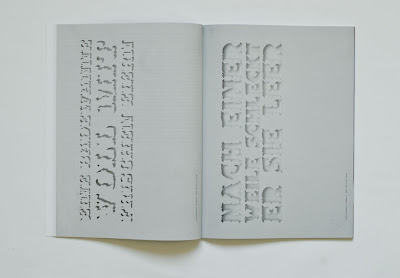 EINE BADEWANNE
VOLL MIT
FRISCHEN EIERN
NACH EINER
WEILE SCHLECKT
ER SIE LEER